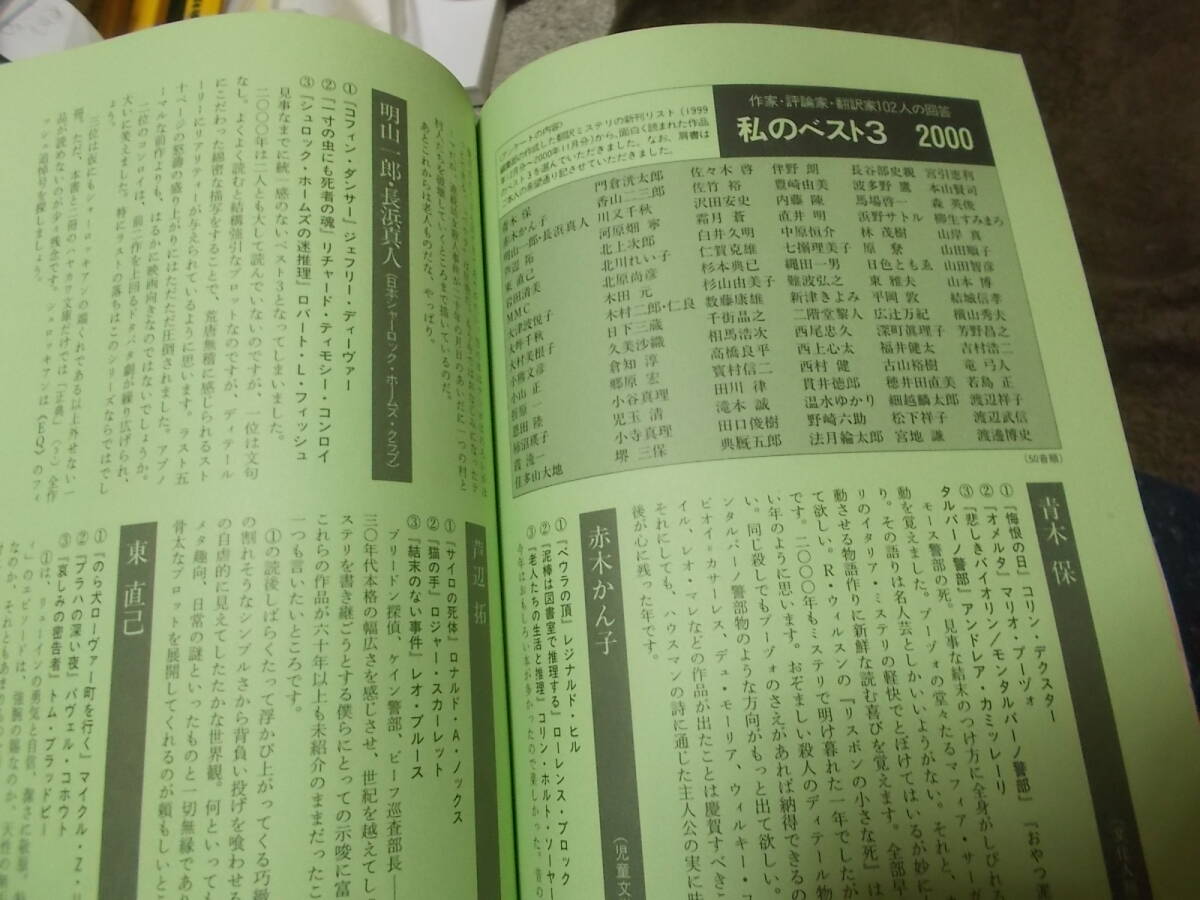 作家・評論家・翻訳家102人の回答
私のベスト3 2000
〈アンケートの内容〉
編集部の作成した翻訳ミステリの新刊リスト(1999
年12月分~2000年11月分)から、面白く読まれた作品
のベスト3を選んでいただきました。なお、肩書は
ご本人の希望通り記させていただきました。
青木 保
赤木かん子
明山一郎・長浜真人
芦辺 拓
東 直己
岩田清美
MMC
大津波悦子
大坪千秋
大村美根子
小熊文彦
小山 正
折原 一
恩田 陸
柿沼瑛子
霞 流一
住多山大地
門倉洸太郎
香山二三郎
川又千秋
河原畑 寧
北上次郎
北川れい子
北原尚彦
木田 元
木村二郎・仁良
日下三蔵
久美沙織
倉知 淳
郷原 宏
小谷真理
児玉 清
小寺真理
堺 三保
佐々木 啓
佐竹 裕
沢田安史
霜月 蒼
白井久明
仁賀克雄
杉本典巳
杉山由美子
数藤康雄
千街晶之
相馬浩次
高橋良平
寳村信二
田川 律
滝本 誠
田口俊樹
典厩五郎
伴野 朗
豊崎由美
内藤 陳
直井 明
中原恒介
七搦理美子
縄田一男
難波弘之
新津きよみ
二階堂黎人
西尾忠久
西上心太
西村 健
貫井徳郎
温水ゆかり
野崎六助
法月綸太郎
長谷部史親
波多野 鷹
馬場啓一
浜野サトル
林 茂樹
原 尞
日色ともゑ
東 雅夫
平岡 敦
広辻万紀
深町眞理子
福井健太
古山裕樹
穂井田直美
細越麟太郎
松下祥子
宮地 謙
宮引恵利
本山賢司
森 英俊
柳生すみまろ
山岸 真
山田順子
山田智彦
山本 博
結城信孝
横山秀夫
芳野昌之
吉村浩二
竜 弓人
若島 正
渡辺祥子
渡辺武信
渡邊博史
(50音順)
青木 保
①『悔恨の日』コリン・デクスター
②『オメルタ』マリオ・プーヅォ
③『悲しきバイオリン/モンタルバーノ警部』
タルバーノ警部』アンドレア・カミッレーリ
モース警部の死。見事な結末のつけ方に全身がしびれる
動を覚えました。プーヅォの堂々たるマフィア・サーガ
り。その語りは名人芸としかいいようがない。それと、
のイタリア・ミステリの軽快でとぼけてはいるが妙に
動させる物語作りに新鮮な読む喜びを覚えます。全部早
て欲しい。R・ウィルスンの『リスボンの小さな死』は
です。二〇〇〇年もミステリで明け暮れた一年でしたが
い年のように思います。おぞましい殺人のディテール物
い。同じ殺しでもプーヅォのさえがあれば納得できるの
ンタルバーノ警部物のような方向がもっと出て欲しい。
ビオイ=カサーレス、デュ・モーリア、ウィルキー・コ
イル、レオ・マレなどの作品が出たことは慶賀すべきこ
それにしても、ハウスマンの詩に通じた主人公の実に味
後が心に残った年です。
赤木かん子
(児童文
①『ベウラの頂』レジナルド・ヒル
②『泥棒は図書室で推理する』ローレンス・ブロック
③『老人たちの生活と推理』コリン・ホルト・ソーヤー
今年はおもしろい本が多かったので楽しかった。昔の
村人たちを俯瞰していくところまで描いているのだ。
あとこれからは老人ものだな、やっぱり。
明山一郎・長浜真人(日本シャーロック・ホームズ・クラブ)
①『コフィン・ダンサー』ジェフリー・ディーヴァー
②『一寸の虫にも死者の魂』リチャード・ティモシー・コンロイ
③『シュロック・ホームズの迷推理』ロバート・L・フィッシュ
見事なまでに統一感のないベスト3となってしまいました。
二〇〇〇年は二人とも大して読んでいないのですが、一位は文句
なし。よくよく読むと結構強引なプロットなのですが、ディテール
にこだわった綿密な描写をすることで、荒唐無稽に感じられるスト
ーリーにリアリティーが与えられているように思います。ラスト五
十ページの怒濤の盛り上がりにはただただ圧倒されました。アブノ
ーマルな前作よりも、はるかに映画向きなのではないでしょうか。
二位のコンロイは、前二作を上回るドタバタ劇が繰り広げられ、
大いに笑えました。特にラストの落ちはこのシリーズならではでし
ょう。
芦辺 拓
①『サイロの死体』ロナルド・A・ノックス
②『猫の手』ロジャー・スカーレット
③『結末のない事件』レオ・ブルース
ブリードン探偵、ケイン警部、ビーフ巡査部長――
三〇年代本格の幅広さを感じさせ、世紀を越えてし
ステリを書き継ごうとする僕らにとっての示唆に富
これらの作品が六十年以上も未紹介のままだったこ
一つも言いたいところです。
①の読後しばらくたって浮かび上がってくる巧緻
の割れそうなシンプルさから背負い投げを喰わせる
の自虐的に見えてしたたかな世界観。何といっても
メタ趣向、日常の謎といったものと一切無縁であり
骨太なプロットを展開してくれるのが頼もしいとこ
東 直己
①『のら犬ローヴァー町を行く』マイクル・Z・
②『プラハの深い夜』パヴェル・コホウト
③『哀しみの密告者』トム・ブラッドビー